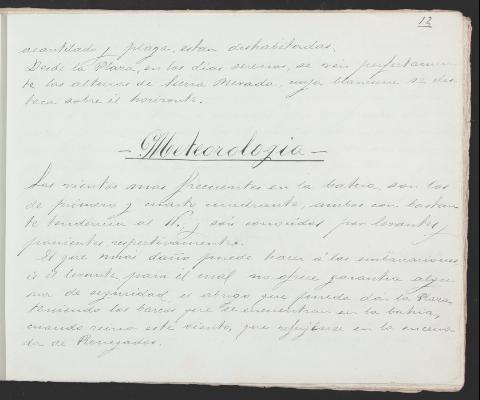 12
acantilado y playa, están deshabitadas.
Desde la Plaza, en los días serenos, se ven perfectamen-
te las alturas de Sierra Nevada, cuya blancura se des-
taca sobre el horizonte.
- Meteorologia -
Los vientos mas frecuentes en la bahia, son los
de primero y cuarto cuadrante, ambos con bastan-
te tendencia al N. y son conocidos por levantes y
ponientes, respectivamente.
El que mas daño puede hacer á las embarcaciones
es el levante, para el cual no ofrece garantia algu-
na de seguridad, el abrigo que pueda dar la Plaza,
teniendo los barcos que se encuentran en la bahia,
cuando reina este viento, que refugiarse en la ensena-
da de Renegados.